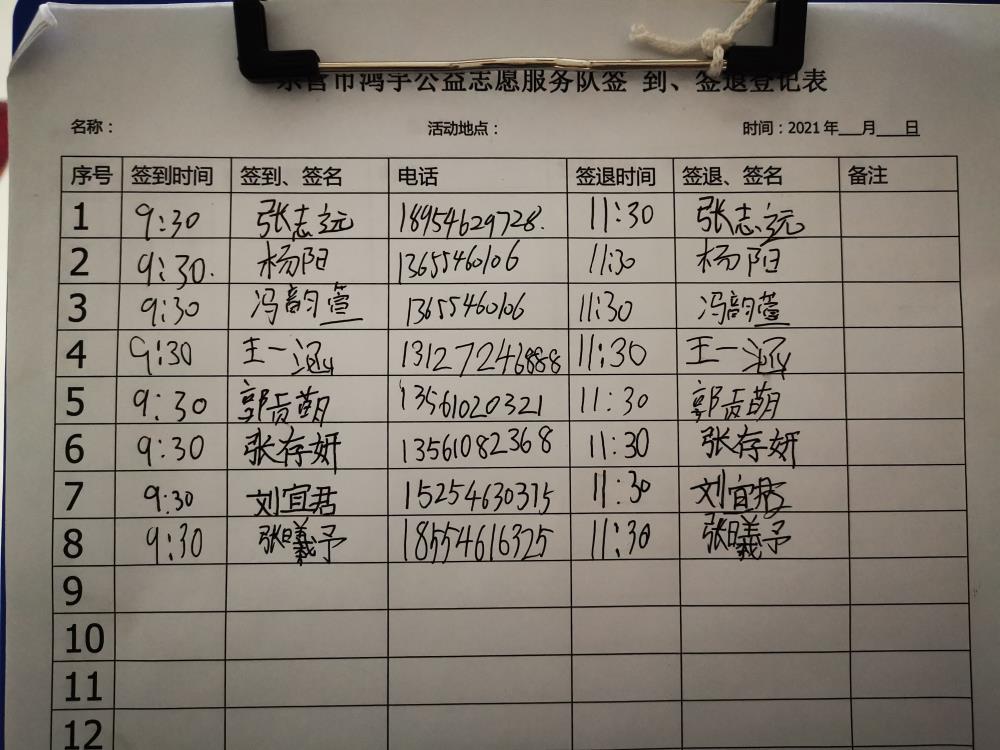 东营市鸿宇公益志愿服务队签 到、签退登记表
名称： 活动地点： 时间：2021 年___月___日
序号 签到时间 签到、签名 电话 签退时间 签退、签名 备注
1 9:30 张志远 18954629728. 11:30 张志远
2 9:30. 杨阳 13655460106 11:30 杨阳
3 9:30 冯韵萱 13655460106 11:30 冯韵萱
4 9:30 王一涵 13127246888 11:30 王一涵
5 9:30 郭贡萌 13561020321 11:30 郭贡萌
6 9:30 张存妍 13561082368 11:30 张存妍
7 9:30 刘宜君 15254630315 11:30 刘宜君
8 9:30 张曦予 18554616325 11:30 张曦予
9
10
11
12